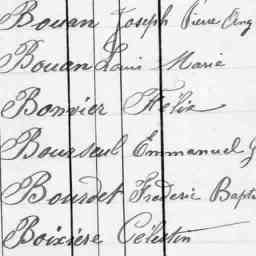 Bouan Joseph Pierre Ang
Bouan Louis Marie
Bonvier Félix
Bourseul Emmanuel J
Bourdet Frédéric Bapt
Boixière Célestin